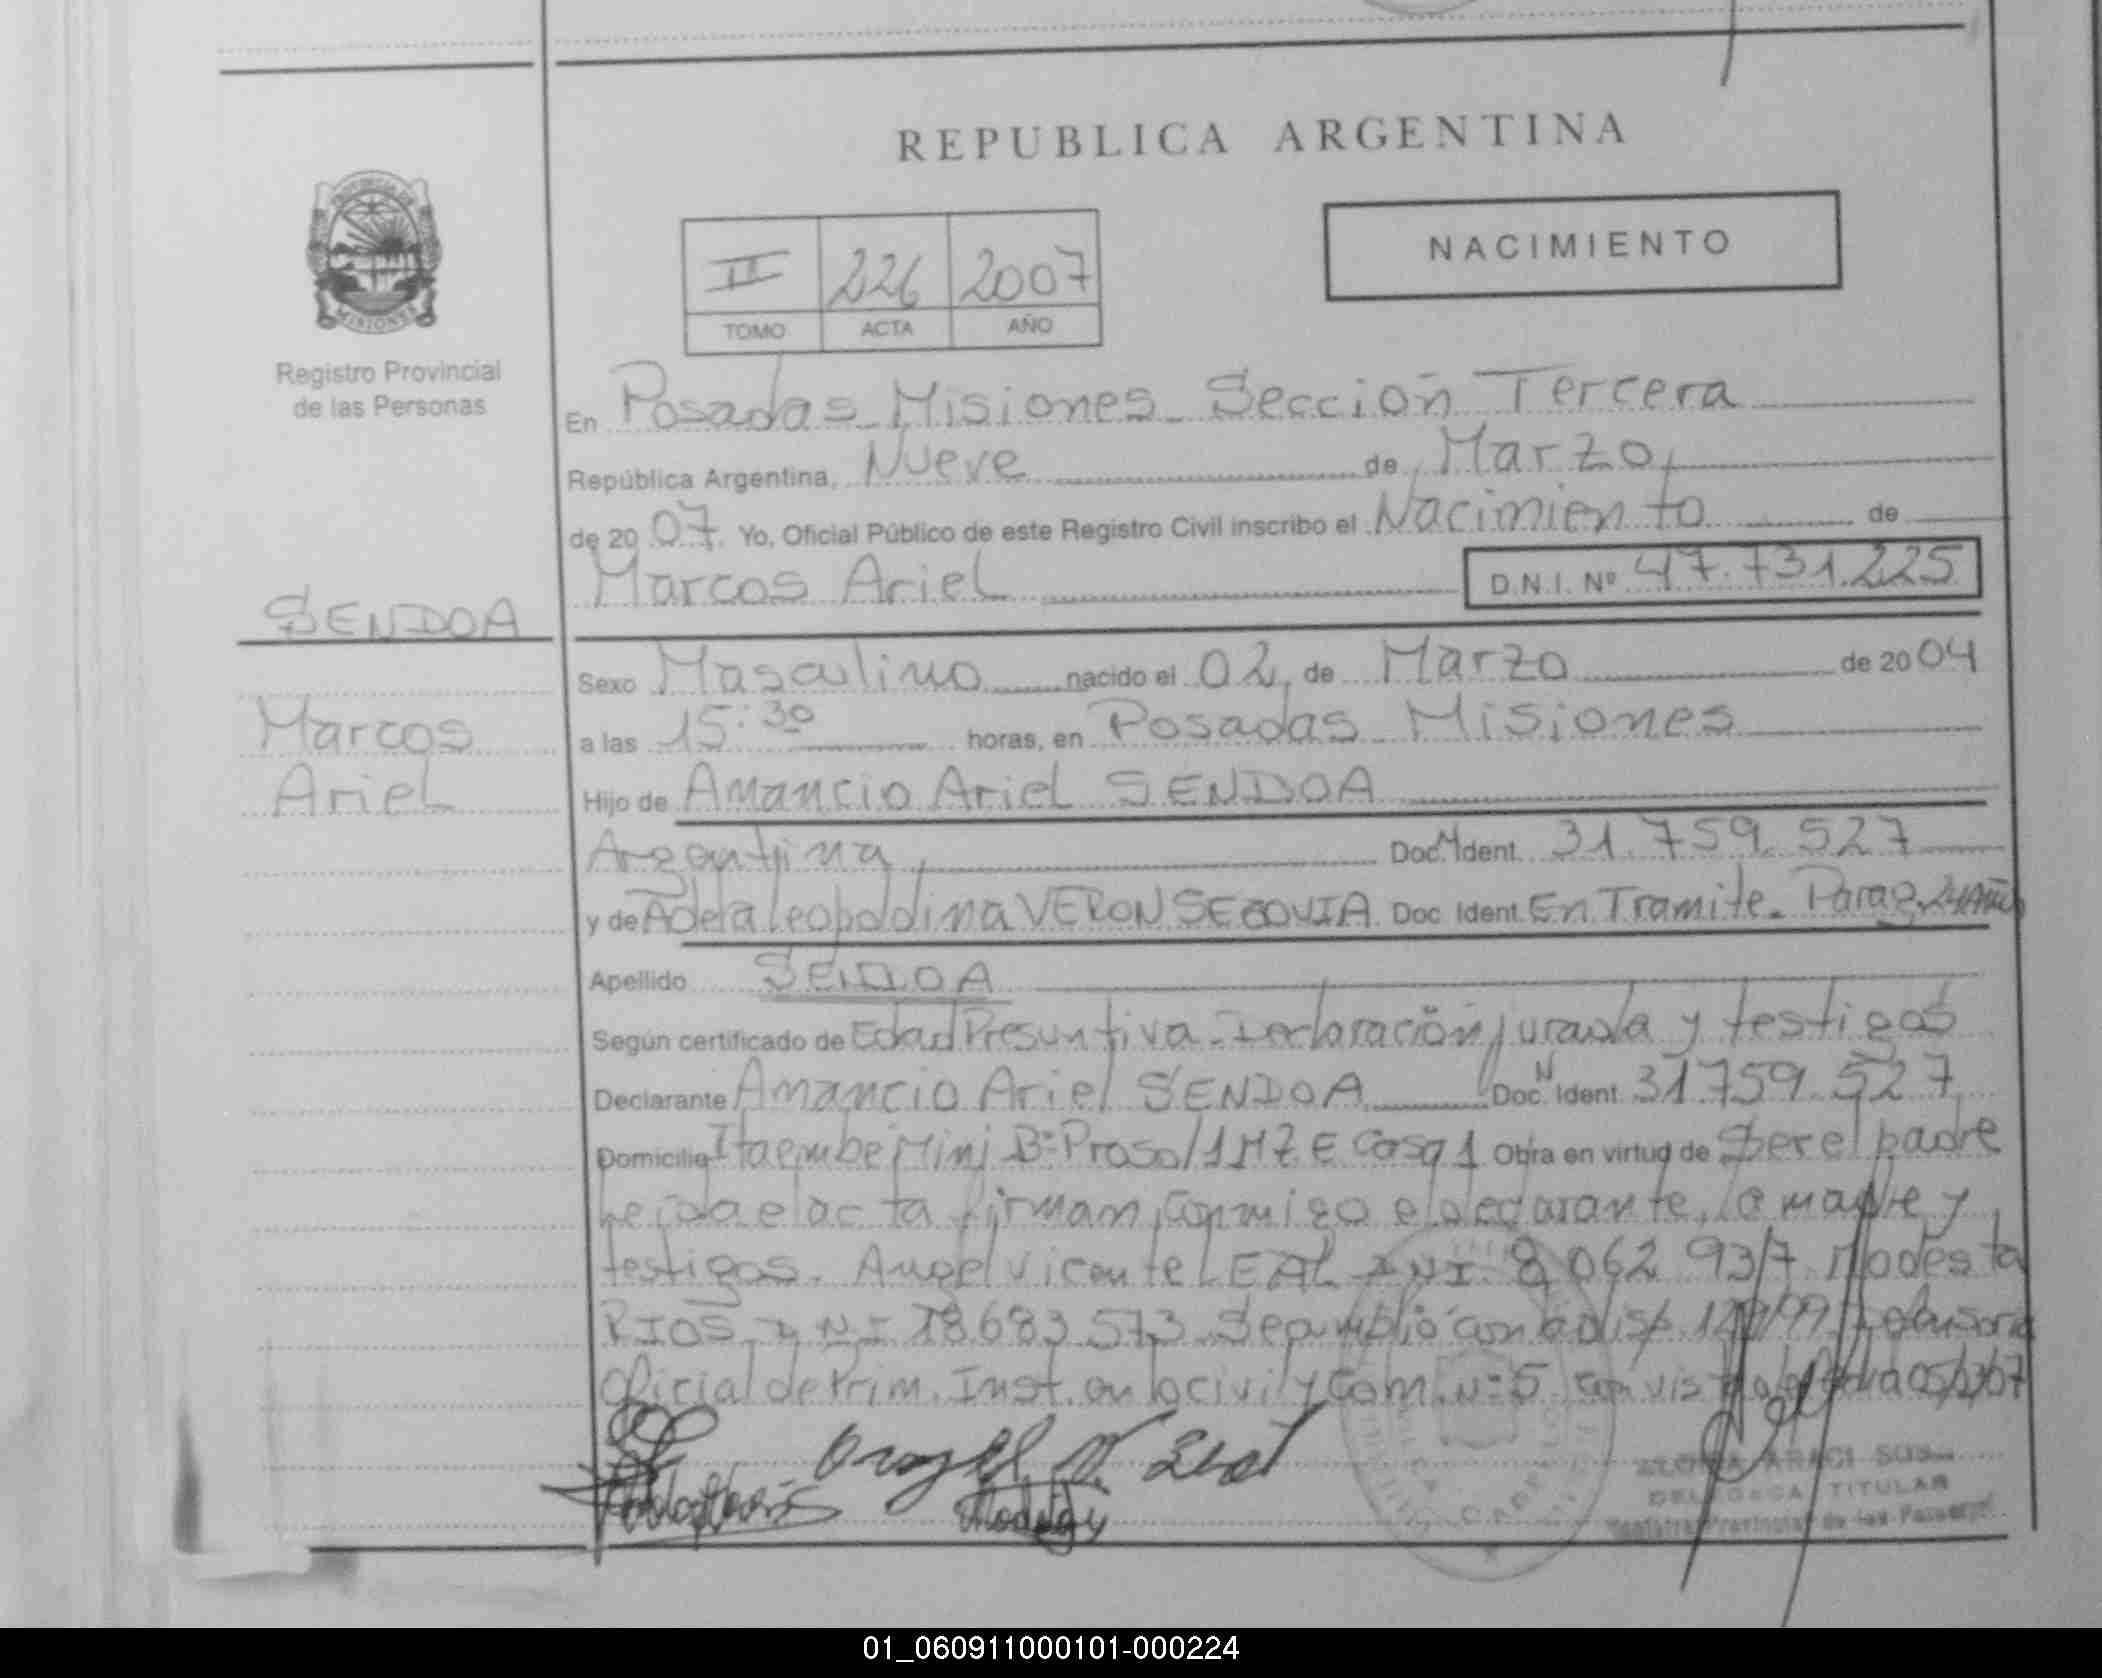 REPUBLICA ARGENTINA
PROVINCIA DE
MISIONES
Registro Provincial
de las Personas
II 226 2007
TOMO ACTA AÑO
NACIMIENTO
En Posadas Misiones Sección Tercera
República Argentina, Nueve de Marzo
de 2007. Yo, Oficial Público de este Registro Civil inscribo el Nacimiento de
Marcos Ariel D.N.I. Nº 47.731.225
SENDOA
Marcos
Ariel
Sexo Masculino nacido el 02 de Marzo de 2004
a las 15:30 horas, en Posadas Misiones
Hijo de Amancio Ariel SENDOA
Argentina Doc. N Ident. 31.759.527
y de Adela Leopoldina VERON SEGOVIA Doc. Ident. En Tramite. Parag. 24 Años
Apellido SENDOA
Según certificado de Edad Presuntiva - Declaración jurada y testigos
Declarante Amancio Ariel SENDOA Doc. N Ident. 31759.527
Domicilio Itaembe Mini Bº Proso/1 MZ E Casa 1 Obra en virtud de Ser el padre
Leida el acta firman conmigo el declarante, la madre y
testigos. Angel Vicente LEAL DNI 8 062 937 Modesta
RIOS DNI 18683.573 Se cumplió con la disp. Defensoria
Oficial de Prim. Inst. en lo civil y Com. Nº 5 con vista 
DELEGADA TITULAR
Registro Provincial de las Personas
01_060911000101-000224